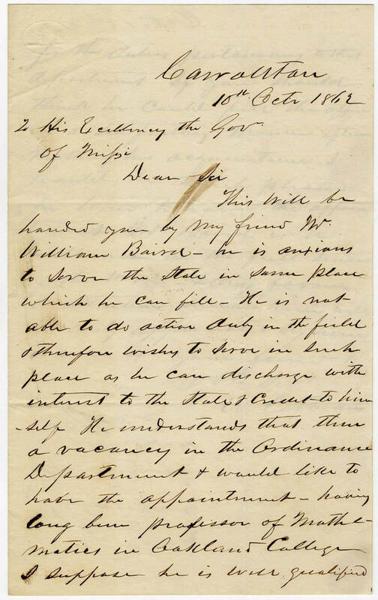 Carrollton
10th Octr 1862
To His Excellency the Gov
of Missi
Dear Sir
This will be
handed you by my friend Mr
William Baird - he is anxious
to serve the State in some place
which he can fill - He is not
able to do active duty in the field
& therefore wishes to serve in such
place as he can discharge with
interest to the State & Credit to him
-self He understands that there
a vacancy in the Ordinance
Department & would like to
have the appointment - having
long been professor of Mathe-
matics in Oakland College
I suppose he is well qualified